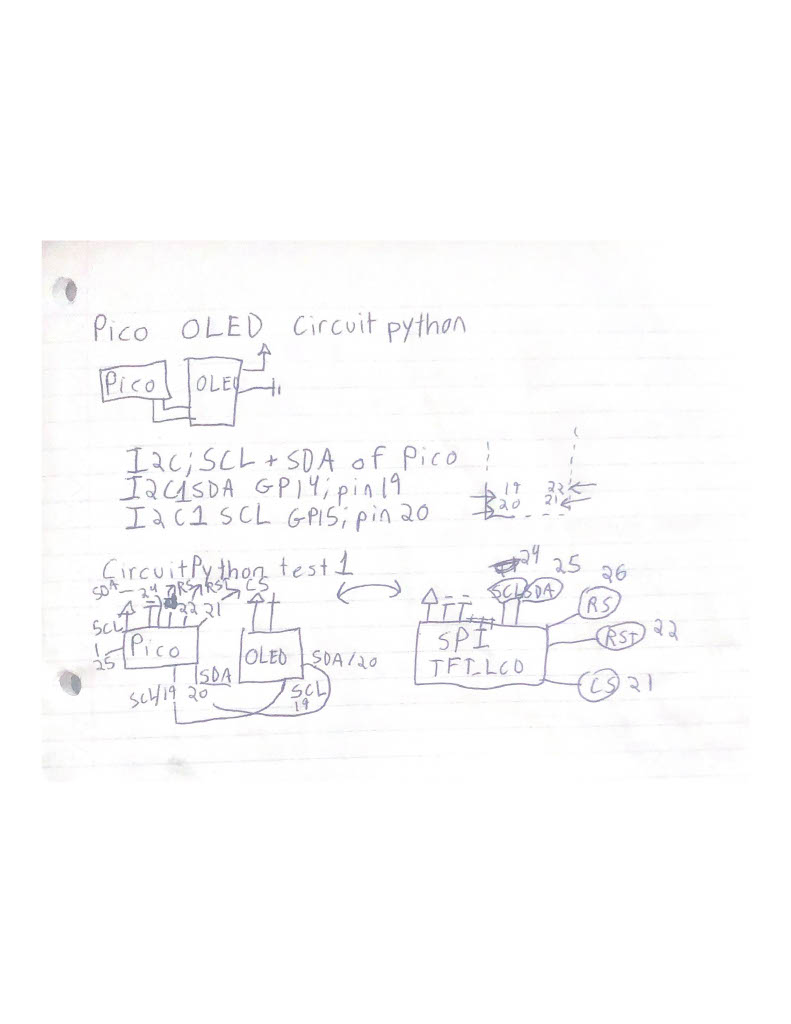 Pico OLED Circuitpython
Pico OLED
I2C; SCL + SDA of Pico
I2C1SDA GP14; pin 19
I2C1 SCL GP15; pin 20
19 22
20 21
CircuitPython test 1
SDA 24 RS RST CS
SCL 22 21
1
25
Pico
SCL/19 SDA
20
OLED SDA/20
SCL
19
24 25 26
SCL SDA RS
SPI
TFT LCD
RST 22
CS 21